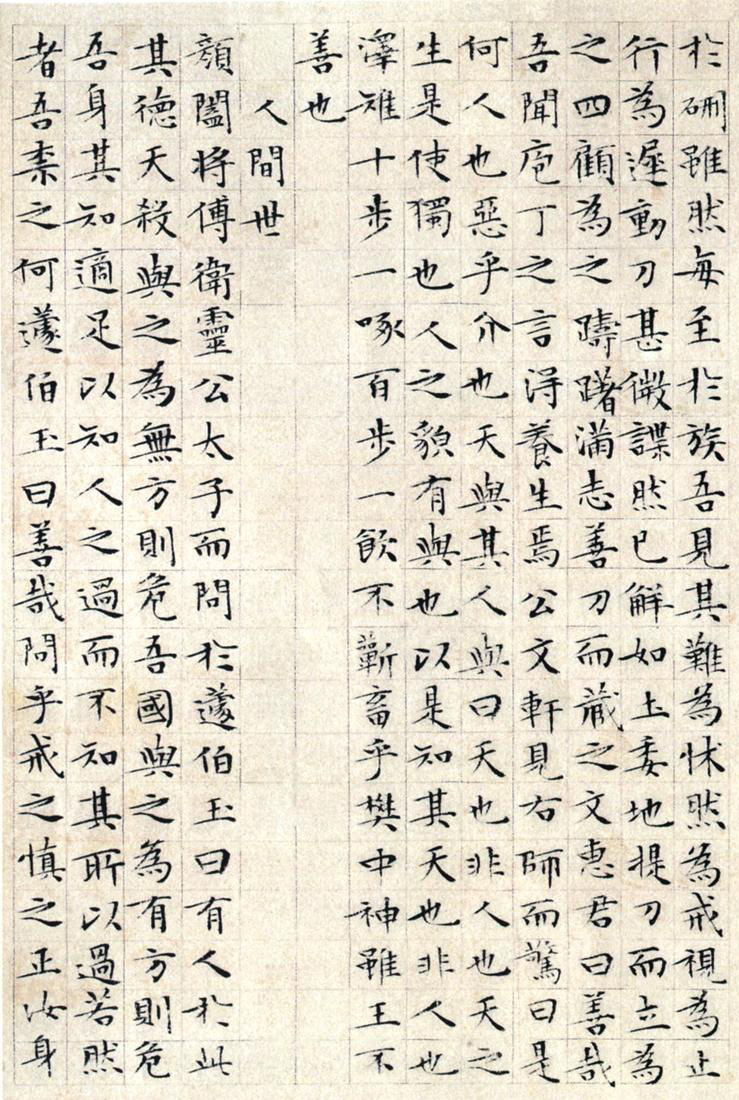 於硎雖然每至於族吾見其難為怵然為戒視為止
行為遲動刀甚微謋然已解如土委地提刀而立為
之四顧為之躊躇滿志善刀而藏之文惠君曰善哉
吾聞庖丁之言得養生焉公文軒見右師而驚曰是
何人也惡乎介也天與其人與曰天也非人也天之
生是使獨也人之貌有與也以是知其天也非人也
澤雉十步一啄百步一飲不蘄畜乎樊中神雖王不
善也
人間世
顏闔將傅衛靈公太子而問於蘧伯玉曰有人於此
其德天殺與之為無方則危吾國與之為有方則危
吾身其知適足以知人之過而不知其所以過若然
者吾柰之何蘧伯玉曰善哉問乎戒之慎之正汝身